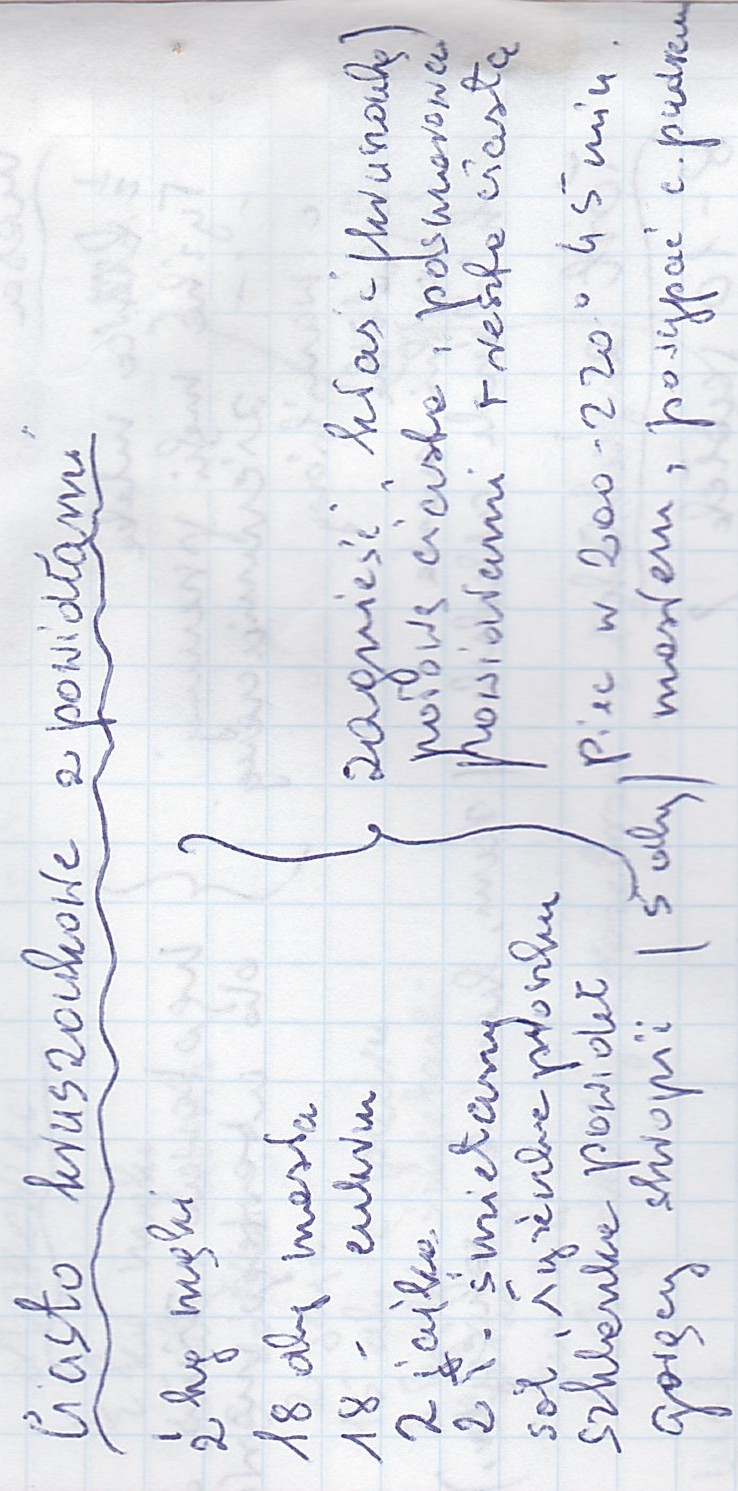 Ciasto kruszonkowe z powidłami
1/2 kg mąki
18 dkg masła
18 - cukru
2 jajka
2 ł. śmietany
sól, łyżeczka proszku
szklanka powideł
zagnieść, kłaść (kruszonkę)
połowę ciasta, posmarować
powidłami + reszta ciasta
piec w 200-220° 45 min.
gorący skropić (5 dkg) masłem, posypać c. pudrem